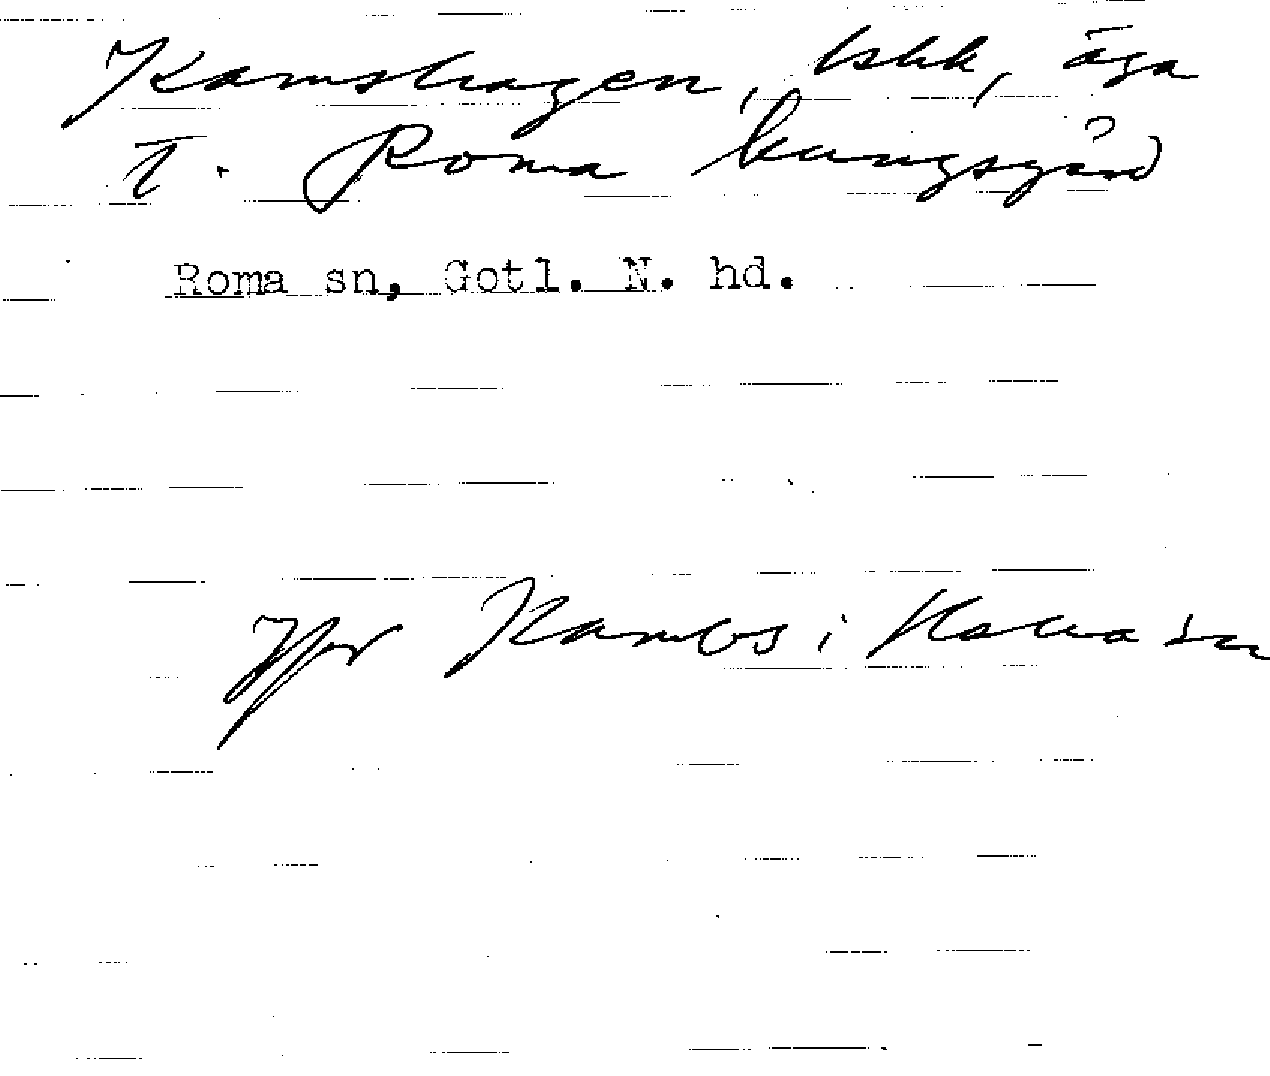 Kamshagen, äga
T. Roma kungsgård
Roma sn, Gotl. N. hd.
Jfr Kambs i Halla sn